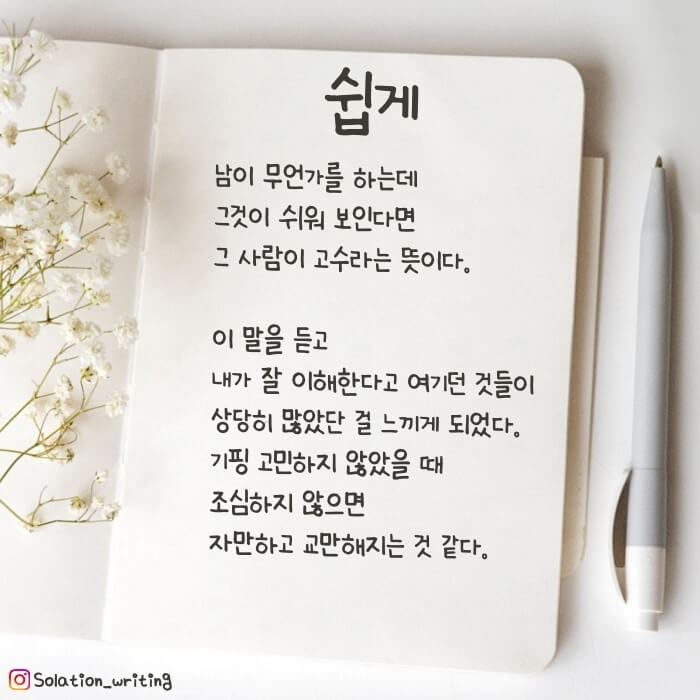 쉽게
남이 무언가를 하는데
그것이 쉬워 보인다면
그 사람이 고수라는 뜻이다.
이 말을 듣고
내가 잘 이해한다고 여기던 것들이
상당히 많았단 걸 느끼게 되었다.
기핑 고민하지 않았을 때
조심하지 않으면
자만하고 교만해지는 것 같다.
Solation_writing